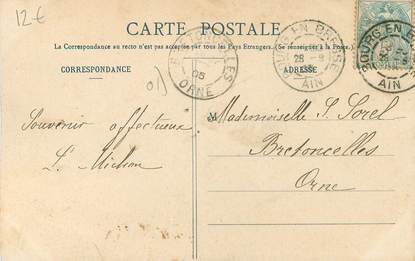 12-€
CARTE POSTALE
La Correspondance au recto n'est pas acceptée par tous les Pays Etrangers. (Se renseigner à la Poste.)
CORRESPONDANCE
ADRESSE
01)
BOURG EN BRESSE
28
AIN
BOURG EN BRESSE
AIN
05
ORNE
Souvenir affectueux
Mademoiselle S. Sorel
Bretoncelles
Orne